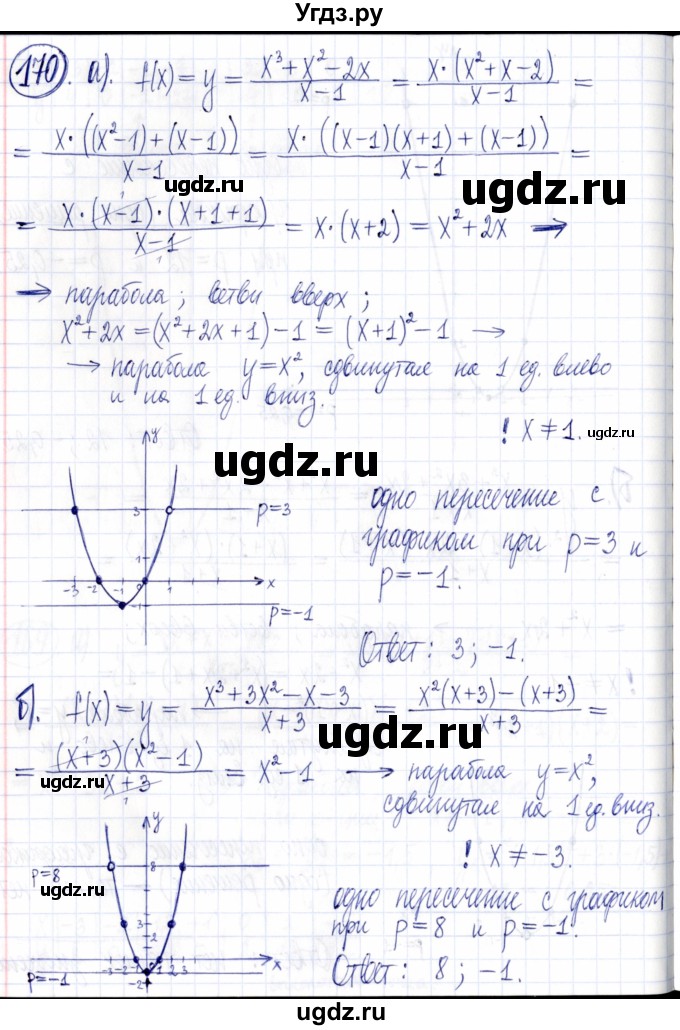 Угдз.ру
170. а). f(x) = y = (x³+x²−2x)/(x−1) = (x·(x²+x−2))/(x−1) =
= (x·((x²−1)+(x−1)))/(x−1) = (x·((x−1)(x+1)+(x−1)))/(x−1) =
ugdz.ru
ugdz.ru
= (x·(x−1)·(x+1+1))/(x−1) = x·(x+2) = x²+2x →
→ парабола; ветви вверх;
x²+2x = (x²+2x+1)−1 = (x+1)²−1 →
→ парабола y=x², сдвинутая на 1 ед. влево
и на 1 ед. вниз.
! x ≠ 1.
ugdz.ru
ugdz.ru
y
3
p=3
1
-3 -2 -1 1 x
-1
p=-1
одно пересечение с
графиком при p=3 и
p=−1.
Ответ: 3; −1.
ugdz.ru
б). f(x) = y = (x³+3x²−x−3)/(x+3) = (x²(x+3)−(x+3))/(x+3) =
= ((x+3)(x²−1))/(x+3) = x²−1 → парабола y=x²,
сдвинутая на 1 ед. вниз.
ugdz.ru
! x ≠ −3.
y
p=8
8
3
2
-3 -2 -1 1 2 3 x
p=-1
-2
одно пересечение с графиком
при p=8 и p=−1.
Ответ: 8; −1.
ugdz.ru
ugdz.ru
ugdz.ru